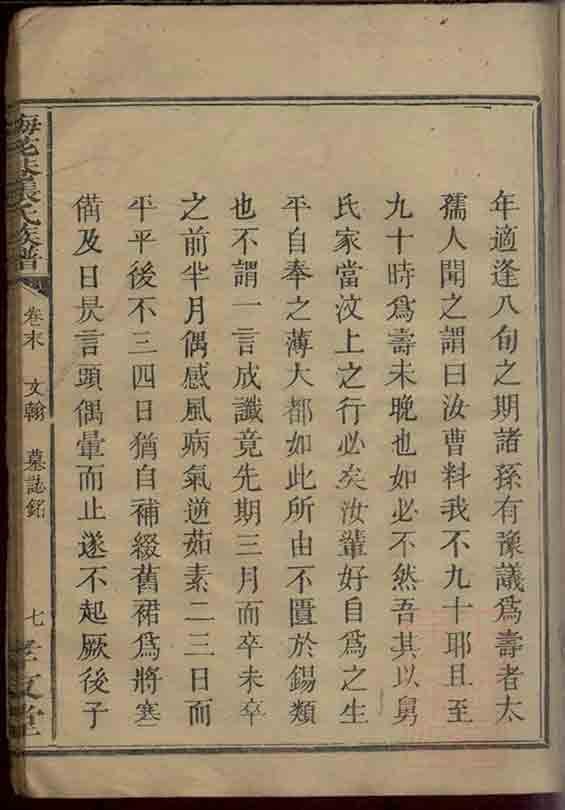 年適逢八旬之期諸孫有豫議爲壽者太
孺人聞之謂曰汝曹料我不九十耶且至
九十時爲壽未晚也如必不然吾其以舅
氏家當汶上之行必矣汝輩好自爲之生
平自奉之薄大都如此所由不匱於錫類
也不謂一言成讖竟先期三月而卒未卒
之前半月偶感風病氣逆茹素二三日而
平平後不三四日猶自補綴舊裙爲將寒
備及日昃言頭偶暈而止遂不起厥後子
張氏族譜
卷末
文翰
墓誌銘
七
孝友堂